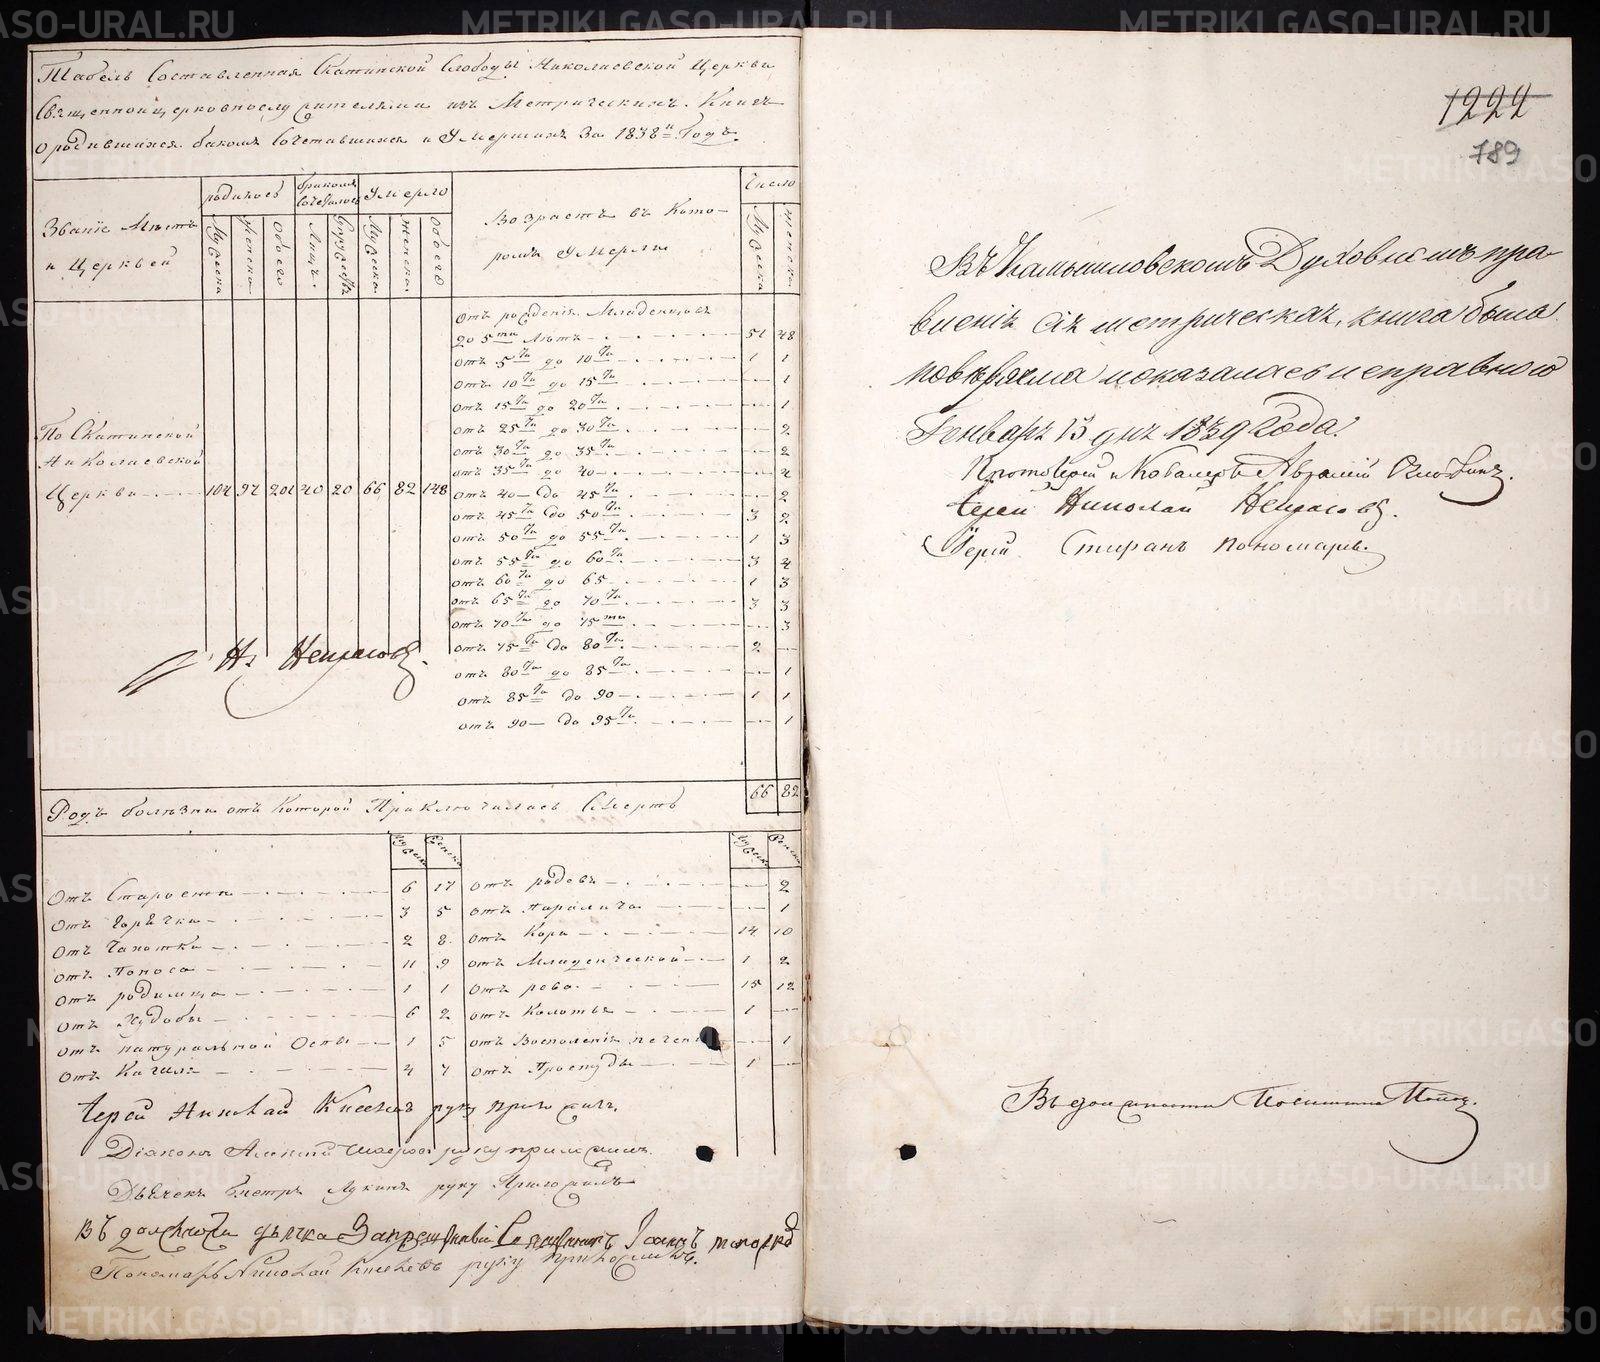 Табель Составленная Скатинской Слободы Николаевской Церкви
Священноцерковнослужителями изъ Метрическихъ Книгъ
о родившихся бракомъ Сочетавшихся и Умершихъ За 1838й Годъ.
Званіе Мѣстъ и Церквей
родилось
Мужеска
Женска
Обоего
бракомъ сочеталось
Лицъ
Супружествъ
Умерло
Мужеска
женска
Обоего
Возрастъ въ Кото-
ромъ Умерли
Число
Мужеска
женска
По Скатинской
Николаевской
Церкви 104 97 201 40 20 66 82 148
Отъ рожденія Младенцовъ
до 5ти Лѣтъ 51 48
Отъ 5ти до 10ти 1 1
Отъ 10ти до 15ти 1
Отъ 15ти до 20ти 1
Отъ 25ти до 30ти 2
Отъ 30ти до 35ти 2
Отъ 35ти до 40
Отъ 40 до 45ти 2
Отъ 45ти до 50ти 3 2
Отъ 50ти до 55ти 1 3
Отъ 55ти до 60ти 3 4
Отъ 60ти до 65 1 3
Отъ 65ти до 70ти 3 3
Отъ 70ти до 75ти 3
Отъ 75ти до 80ти 2
Отъ 80ти до 85ти 1
Отъ 85ти до 90 1 1
Отъ 90 до 95ти 1
66 82
Н. Некрасовъ.
Родъ болѣзни отъ Которой Приключилась Смерть
Мужеска Женска Мужеска Женска
Отъ Старости 6 17
Отъ Горячки 3 5
Отъ Чахотки 2 8
Отъ Поноса 11 9
Отъ родимца 1 1
Отъ Худобы 6 2
Отъ натуральной Оспы 1 5
Отъ Кашля 4 7
Отъ родовъ 2
Отъ Паралича 1
Отъ Кори 14 10
Отъ Младенческой 1 2
Отъ рева 15 12
Отъ Колотья 1
Отъ Восполенія печени 1
Отъ Простуды 1
Іерей Николай Киселевъ руку приложилъ.
Діаконъ Алексій руку приложилъ.
Дьячекъ Петръ Лукинъ руку Приложилъ
Въ должности дьячка Запрещенный Священникъ Іоаннъ
Пономарь Николай Киселевъ руку приложилъ.
1224
789
Въ Камышловскомъ Духовномъ пра
вленіи сія метрическая книга была
повѣряема и оказалась исправною
Генваря 13 дня 1839 Года.
Протоіерей и Кавалеръ Авраамій
Іерей Николай Некрасовъ.
Іерей Стефанъ Пономаревъ.
Въ должности
METRIKI.GASO-URAL.RU